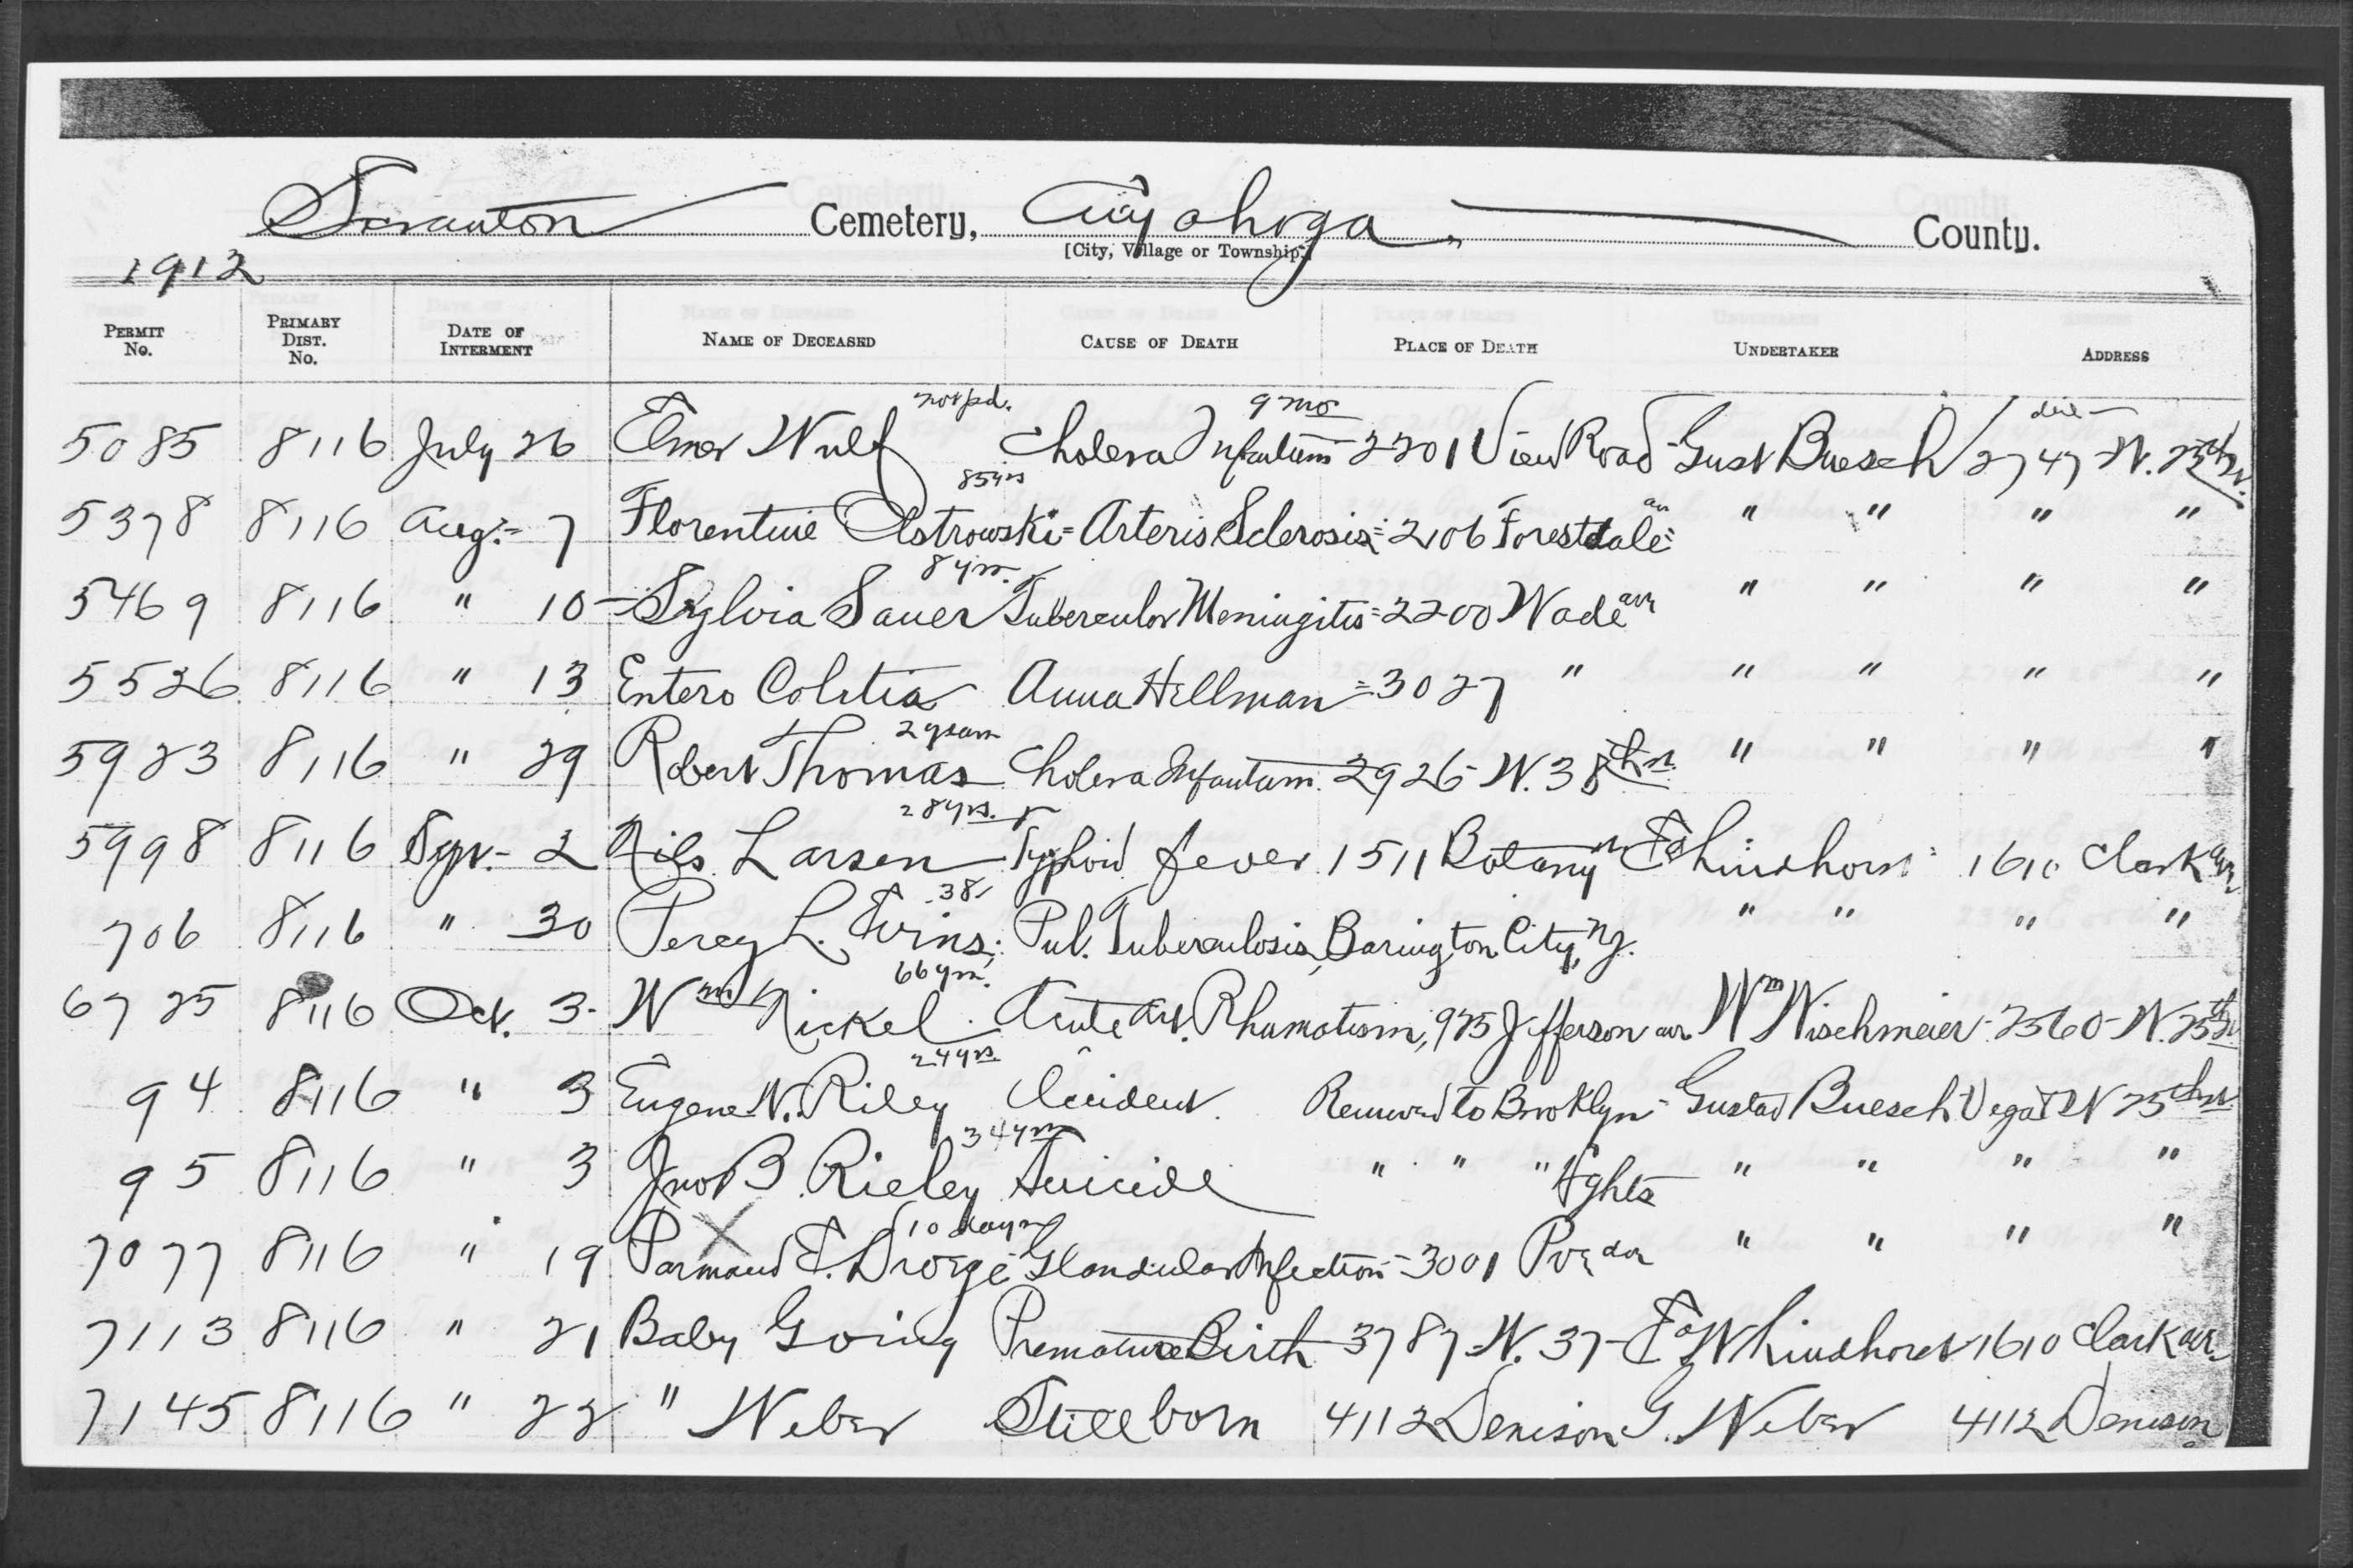 Scranton Cemetery, Cuyahoga County.
[City, Village or Township.]
1912
Permit No. Primary Dist. No. Date of Interment Name of Deceased Cause of Death Place of Death Undertaker Address
not pd. 9 mo
5085 8116 July 26 Elmer Wulf Cholera Infantum 2201 View Road Gust Buesch 2747 W. 25th St.
85 yrs
5378 8116 Aug. 7 Florentine Ostrowski Arteris Sclerosis 2106 Forestdale av " " " "
8 yrs.
5469 8116 " 10 Sylvia Sauer Tubercular Meningitis 2200 Wade ave " " " "
5526 8116 " 13 Entero Colitia Anna Hillman 3027 " " " " "
2 years
5923 8116 " 29 Robert Thomas Cholera Infantum 2926 W. 38th st. " " " "
28 yrs.
5998 8116 Sept. 2 Nils Larsen Typhoid fever 1511 Botany 1610 Clark ave
38
706 8116 " 30 Percy L. Pul. Tuberculosis, Barington City, N.J. " " " "
66 yrs.
6725 8116 Oct. 3 Wm Nickel Acute Art. Rhumatism, 925 Jefferson ave Wm Wischmeier 2560 W. 25th St.
24 yrs
94 8116 " 3 Eugene N. Riley Accident Removed to Brooklyn Gustav Buesch Vega & W 25th st
34 yrs
95 8116 " 3 Jno B. Rieley Suicide " " " Hghts " " " "
10 days
7077 8116 " 19 Glandular Infection 3001 Poe ave " " " "
7113 8116 " 21 Baby Going Premature Birth 3787 W. 37 Ed W Lindhorst 1610 Clark ave.
7145 8116 " 22 " Weber Stillborn 4112 Denison G. Weber 4112 Denison